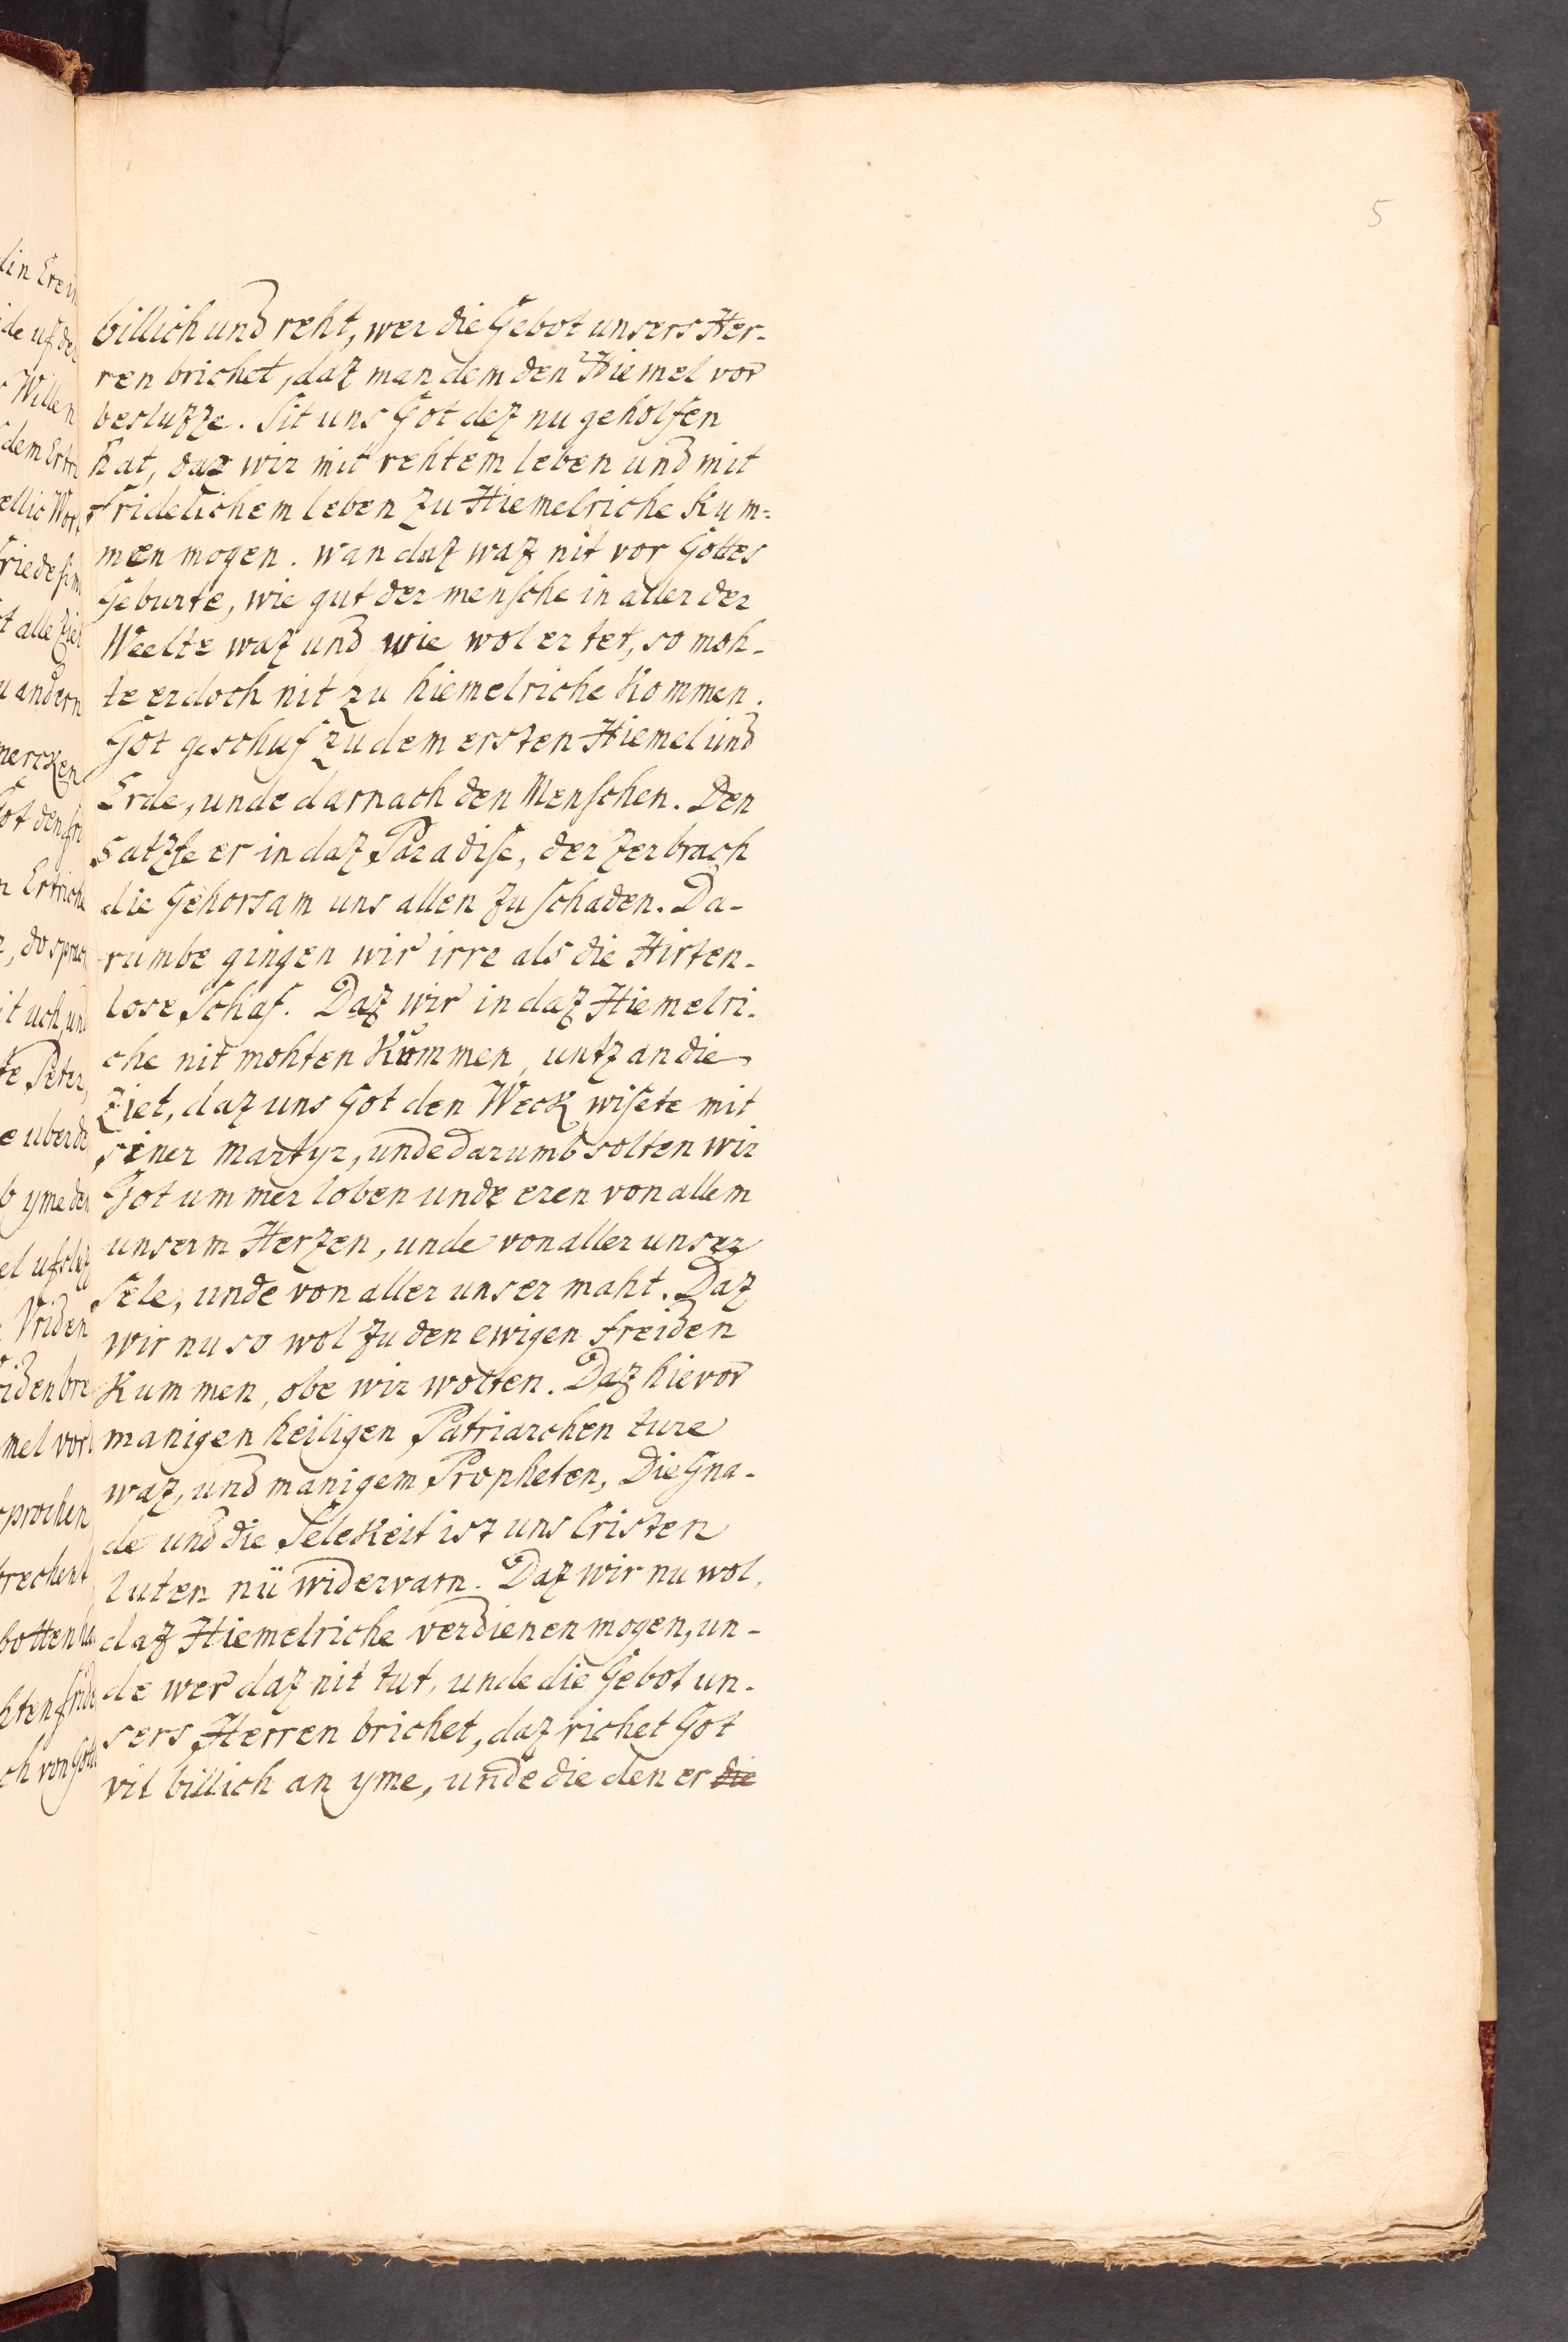 5
billich und reht, wer die Gebot unsers Her-
ren brichet, daz man dem den Hiemel vor
besluzze. Sit uns Got dez nu geholfen
hat, daz wir mit rehtem leben und mit
fridelichem leben zu Hiemelriche kum=
men mogen. wan daz waz nit vor Gottes
Geburte, wie gut der mensche in aller der
Weelte waz und wie wol er tet, so moh-
te er doch nit zu hiemelriche kommen.
Got geschuf zu dem ersten Hiemel und
Erde, unde darnach den Menschen. Den
satzte er in daz Paradise, der zerbrach
die Gehorsam uns allen zu schaden. Da-
rumbe gingen wir irre als die Hirten-
lose Schaf. Daz wir in daz Hiemelri-
che nit mohten kummen, untz an die
Ziet, daz uns Got den Weck wisete mit
siner martyr, unde darumb solten wir
Got ummer loben unde eren von allem
unserm Herzen, unde von aller unser
Sele, unde von aller unser maht. Daz
wir nu so wol zu den ewigen freiden
kummen, obe wir wollen. Daz hievor
manigen heiligen Patriarchen ture
waz, und manigem Propheten, Die Gna-
de und die Selekeit ist uns Cristen
luten nü widervarn. Daz wir nu wol
daz Hiemelriche verdienen mogen, un-
de wer daz nit tut, unde die Gebot un-
sers Herren brichet, daz richet Got
vil billich an yme, unde die den er die